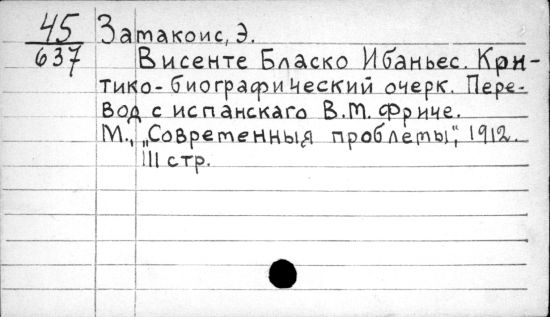 45 Замакоис, Э.
637 Висенте Бласко Ибаньес. Кри-
тико-биографический очерк. Пере-
вод с испанскаго В.М. Фриче.
М., „Современныя проблемы“, 1912.
111 стр.